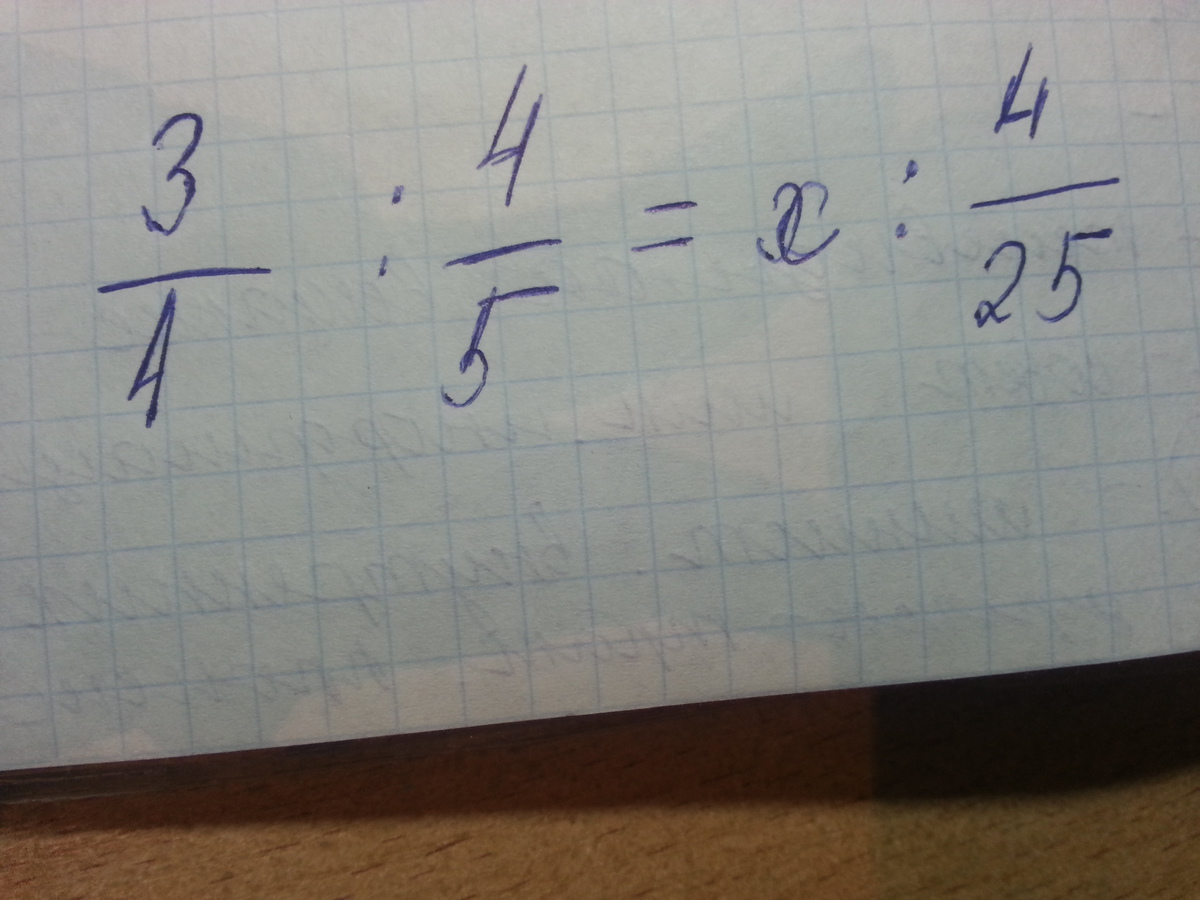 3/4 : 4/5 = x : 4/25